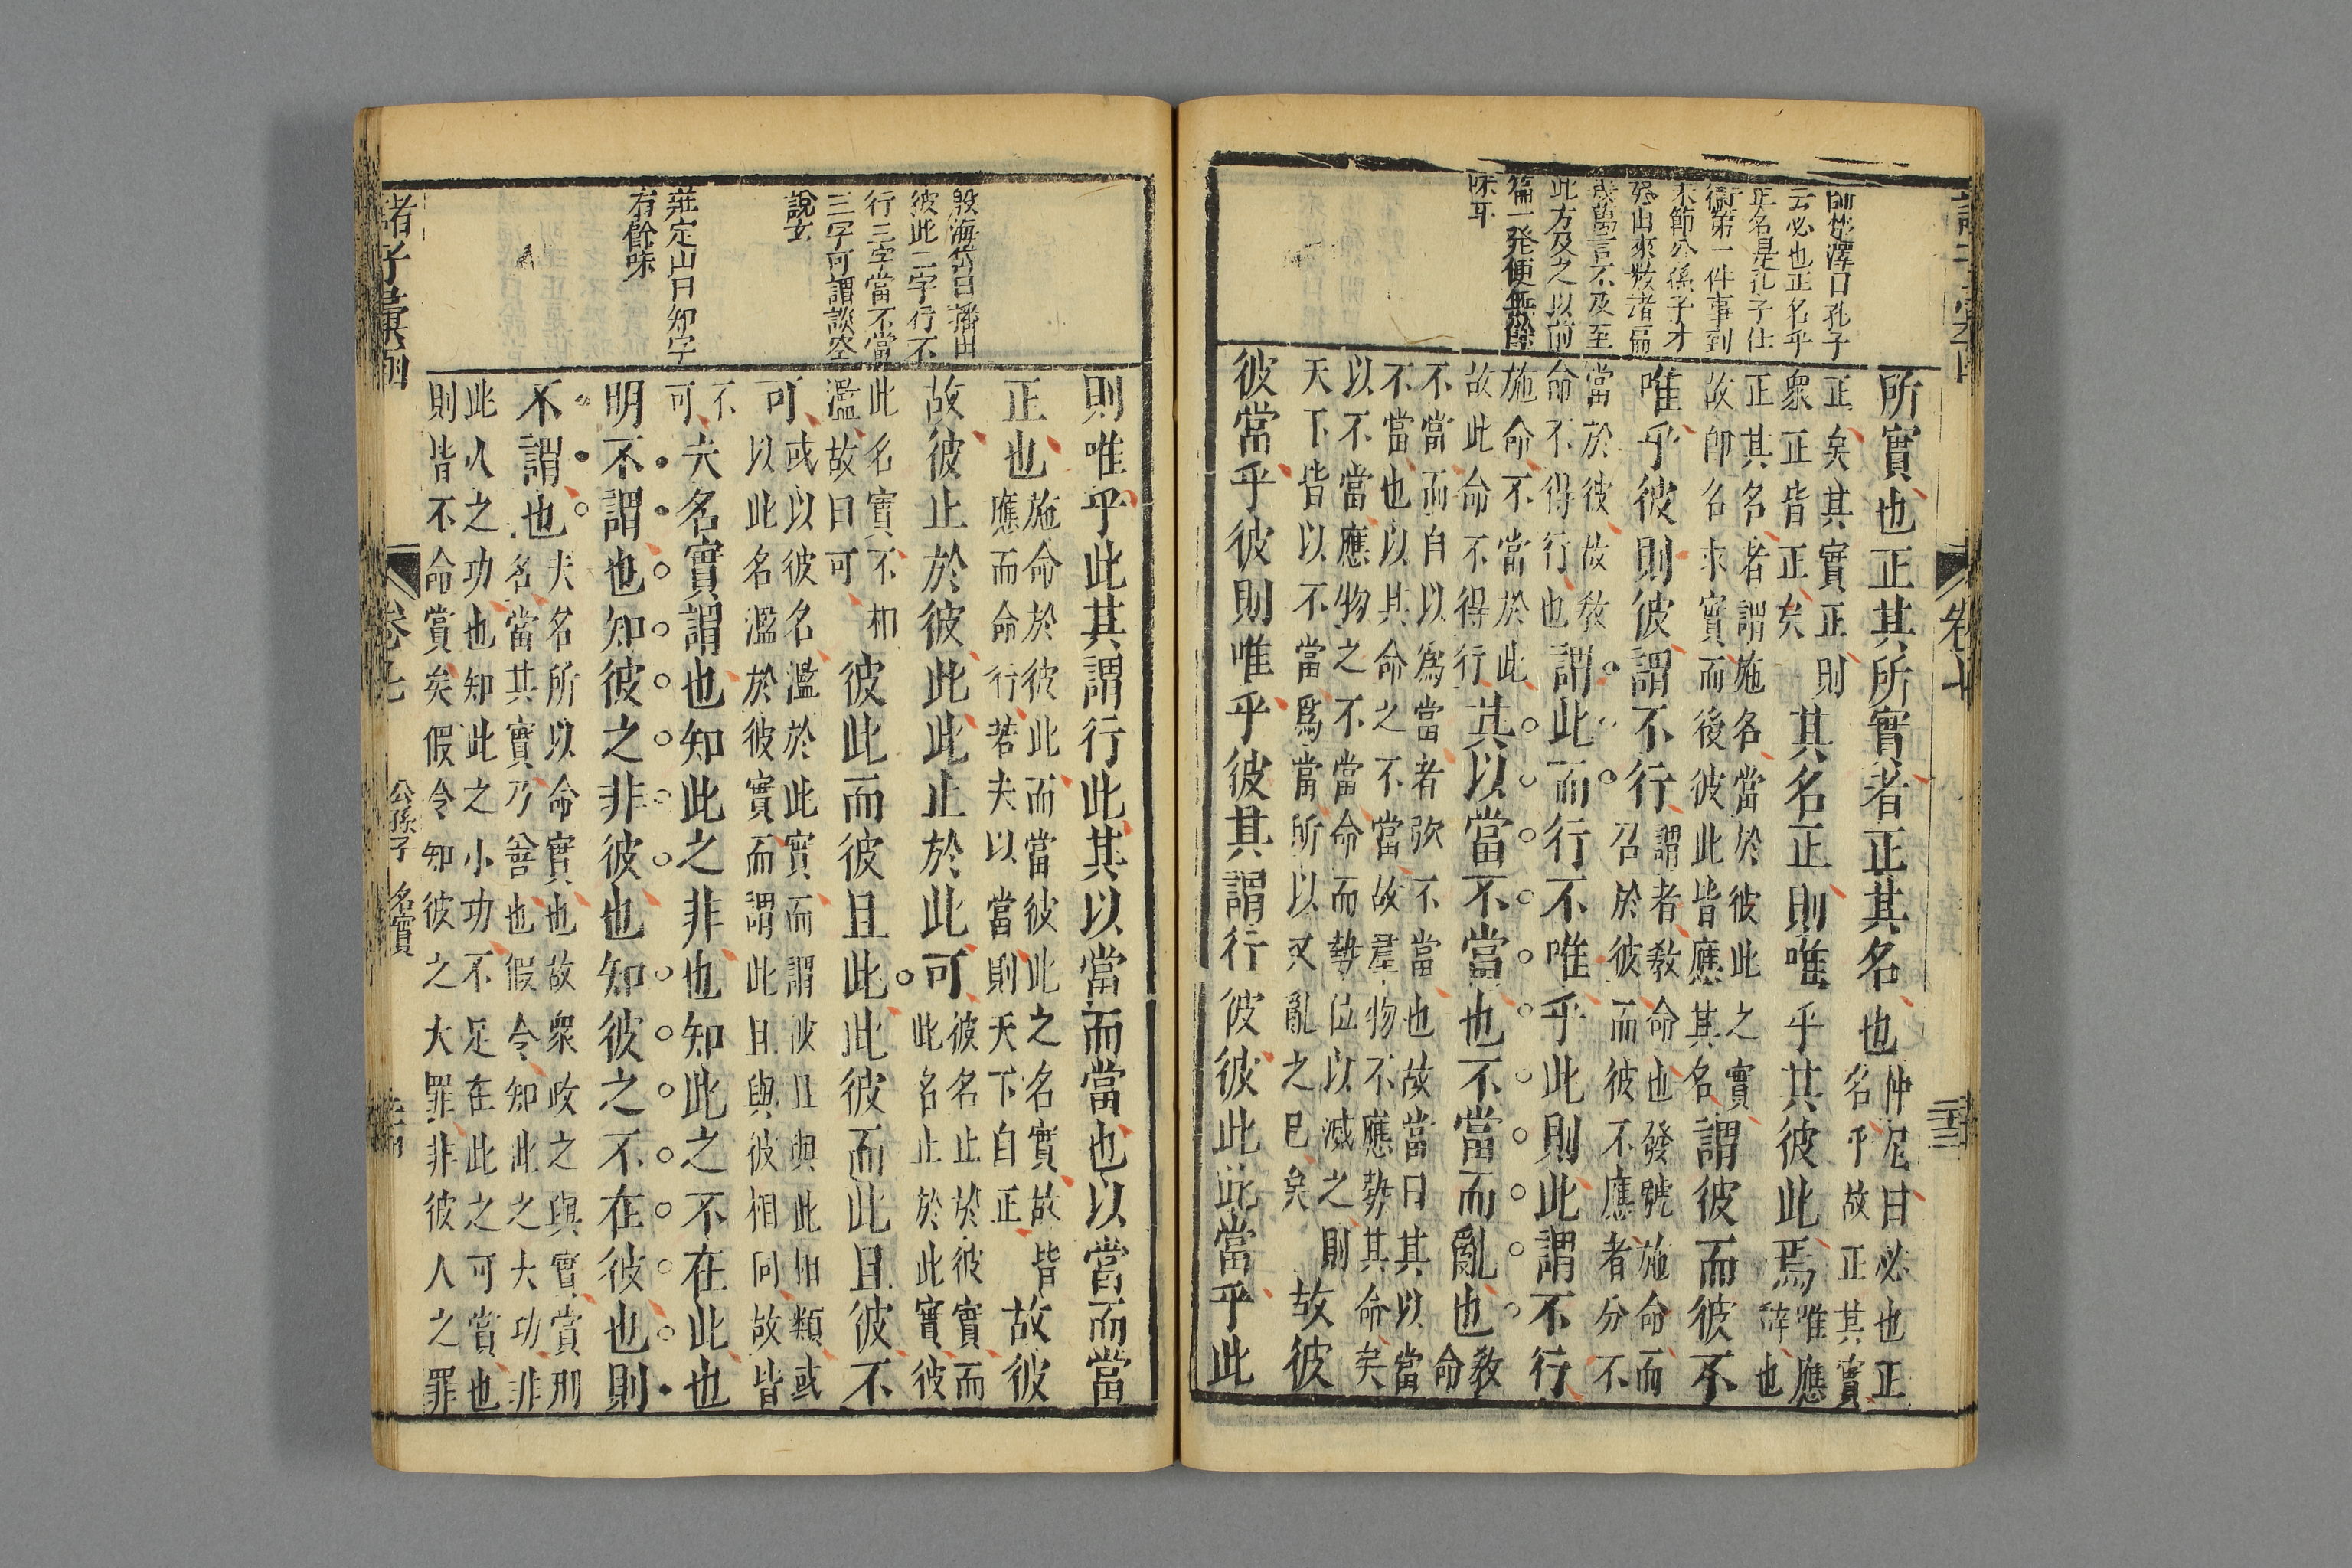 云必也正名乎
正名是孔子仕
衞第一件事到
末節公孫子才
幾萬言不及至
此方及之以前
篇一発便無餘
味耳
所實也正其所實者正其名也
仲尼曰必也正
名乎故正其實
正矣其實正則
衆正皆正矣
其名正則唯乎其彼此焉
唯應
辭也
正其名者謂施名當於彼此之實
故即名求實而後彼此皆應其名
謂彼而彼不
唯乎彼則彼謂不行
謂者教命也發號施命而
召於彼而彼不應者分不
當於彼故教
命不得行也
謂此而行不唯乎此則此謂不行
施命不當於此
故此命不得行
其以當不當也不當而亂也
教
命
不當而自以為當者弥不當也故當曰其以當
不當也以其命之不當故羣物不應勢其命矣
以不當應物之不當命而勢位以滅之則
天下皆以不當爲當所以又亂之已矣
故彼
彼當乎彼則唯乎彼其謂行彼彼此此當乎此
殷海岱曰播出
彼此二字行不
行三字當不當
三字可謂談空
說玄
莊定山曰知字
有餘味
則唯乎此其謂行此其以當而當也以當而當
正也
施命於彼此而當彼此之名實故皆
應而命行若夫以當則天下自正
故彼
故彼止於彼此此止於此可
彼名止於彼實而
此名止於此實彼
此名實不相
濫故曰可
彼此而彼且此此彼而此且彼不
可
或以彼名濫於此實而謂彼且與此相類或
以此名濫於彼實而謂此且與彼相同故皆
不
可
夫名實謂也知此之非也知此之不在此也
明不謂也知彼之非彼也知彼之不在彼也則
不謂也
夫名所以命實也故衆政之與實賞刑
名當其實乃善也假令知此之大功非
此人之功也知此之小功不足在此之可賞也
則皆不命賞矣假令知彼之大罪非彼人之罪
諸子彙函
公孫子 名實